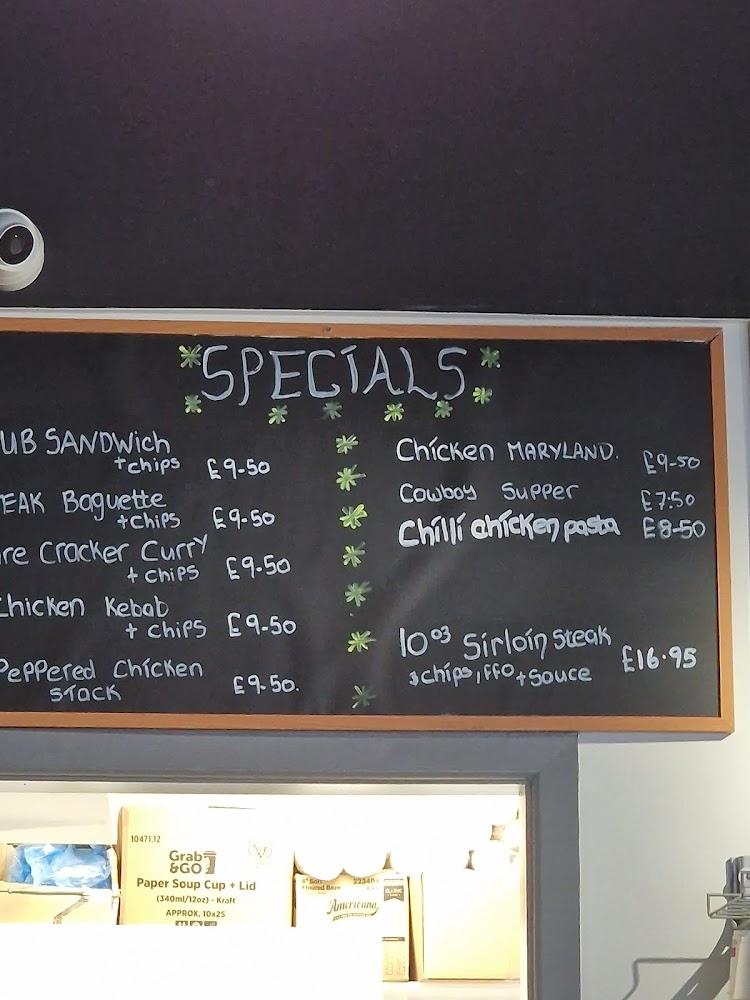 SPECIALS
UB SANDWich
+chips £9-50
EAK Baguette
+chips £9-50
re Cracker Curry
+ chips £9.50
Chicken Kebab
+ chips £9-50
Peppered Chicken
STACK £9.50.
Chicken MARYLAND. £9-50
Cowboy Supper £7.50
Chilli chicken pasta £8-50
10oz Sirloin Steak
chips, ffo + Sauce £16.95
10471.12
Grab
&GO
Paper Soup Cup + Lid
(340ml/12oz) - Kraft
APPROX. 10x25
Americana